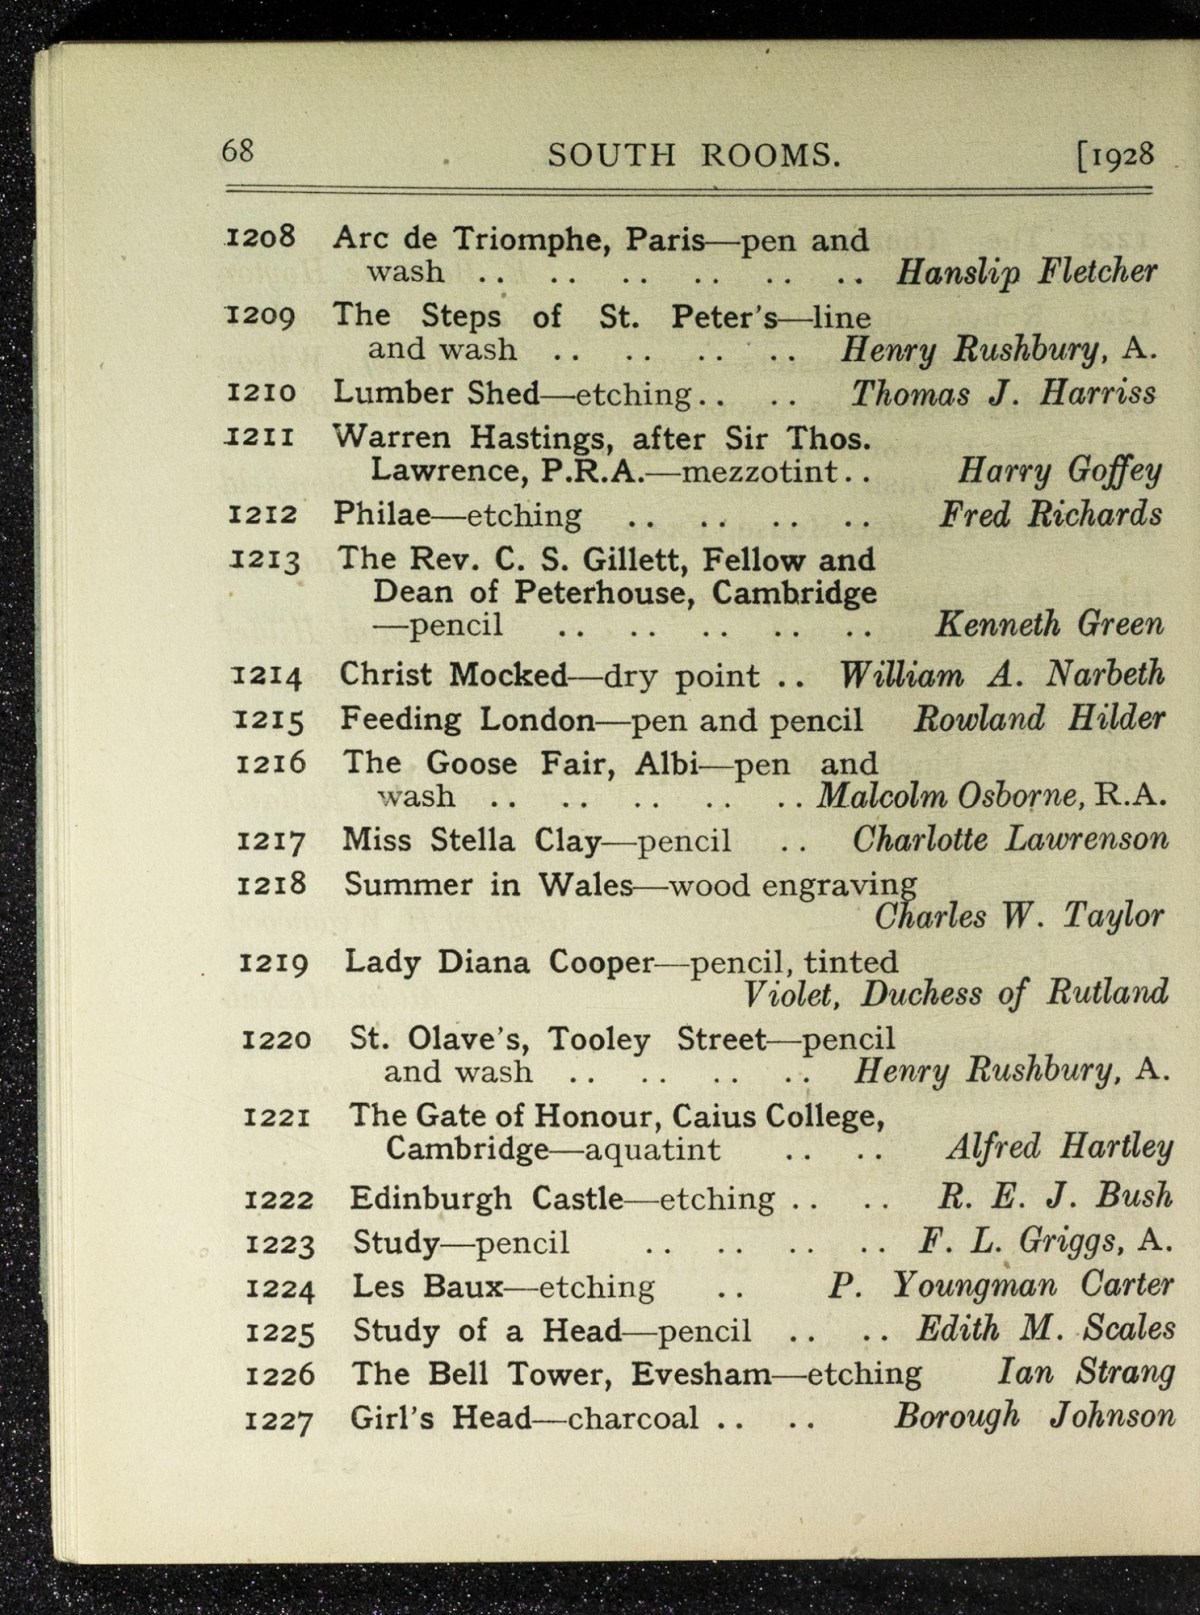 68 SOUTH ROOMS. [1928
1208 Arc de Triomphe, Paris—pen and
wash .. .. .. .. .. .. Hanslip Fletcher
1209 The Steps of St. Peter's—line
and wash .. .. .. .. Henry Rushbury, A.
1210 Lumber Shed—etching .. .. Thomas J. Harriss
1211 Warren Hastings, after Sir Thos.
Lawrence, P.R.A.—mezzotint .. Harry Goffey
1212 Philae—etching .. .. .. .. Fred Richards
1213 The Rev. C. S. Gillett, Fellow and
Dean of Peterhouse, Cambridge
—pencil .. .. .. .. .. Kenneth Green
1214 Christ Mocked—dry point .. William A. Narbeth
1215 Feeding London—pen and pencil Rowland Hilder
1216 The Goose Fair, Albi—pen and
wash .. .. .. .. .. Malcolm Osborne, R.A.
1217 Miss Stella Clay—pencil .. Charlotte Lawrenson
1218 Summer in Wales—wood engraving
Charles W. Taylor
1219 Lady Diana Cooper—pencil, tinted
Violet, Duchess of Rutland
1220 St. Olave's, Tooley Street—pencil
and wash .. .. .. .. Henry Rushbury, A.
1221 The Gate of Honour, Caius College,
Cambridge—aquatint .. .. Alfred Hartley
1222 Edinburgh Castle—etching .. .. R. E. J. Bush
1223 Study—pencil .. .. .. .. F. L. Griggs, A.
1224 Les Baux—etching .. P. Youngman Carter
1225 Study of a Head—pencil .. .. Edith M. Scales
1226 The Bell Tower, Evesham—etching Ian Strang
1227 Girl's Head—charcoal .. .. Borough Johnson